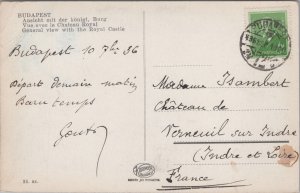 BUDAPEST
Ansicht mit der königl. Burg
Vue avec le Chateau Royal
General view with the Royal Castle
Budapest 10 7bre 36
Départ demain matin
Beau temps
Madame Isambert
Château de
Verneuil sur Indre
(Indre et Loire)
France